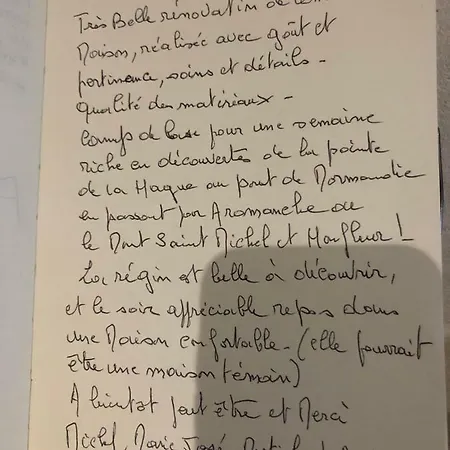 Très Belle rénovation de
Maison, réalisée avec goût et
pertinence, soins et détails -
qualité des matériaux -
Camp de base pour une semaine
riche en découvertes de la pointe
de la Hague au pont de Normandie
en passant par Aromanche ou
le Mont Saint Michel et Honfleur !
La région est belle à découvrir,
et le soir appréciable repos dans
une Maison confortable - (elle pourrait
être une maison témoin)
A bientôt peut être et Merci
Michel, Marie José,